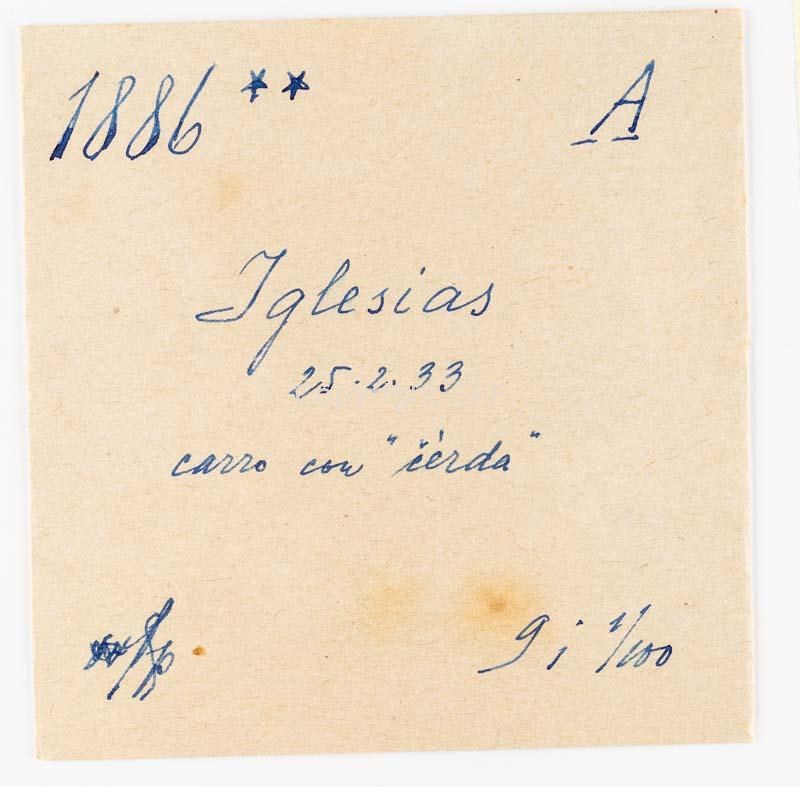 1886 ** A
Iglesias
25.2.33
carro con "čèrda"
9 i 1/100